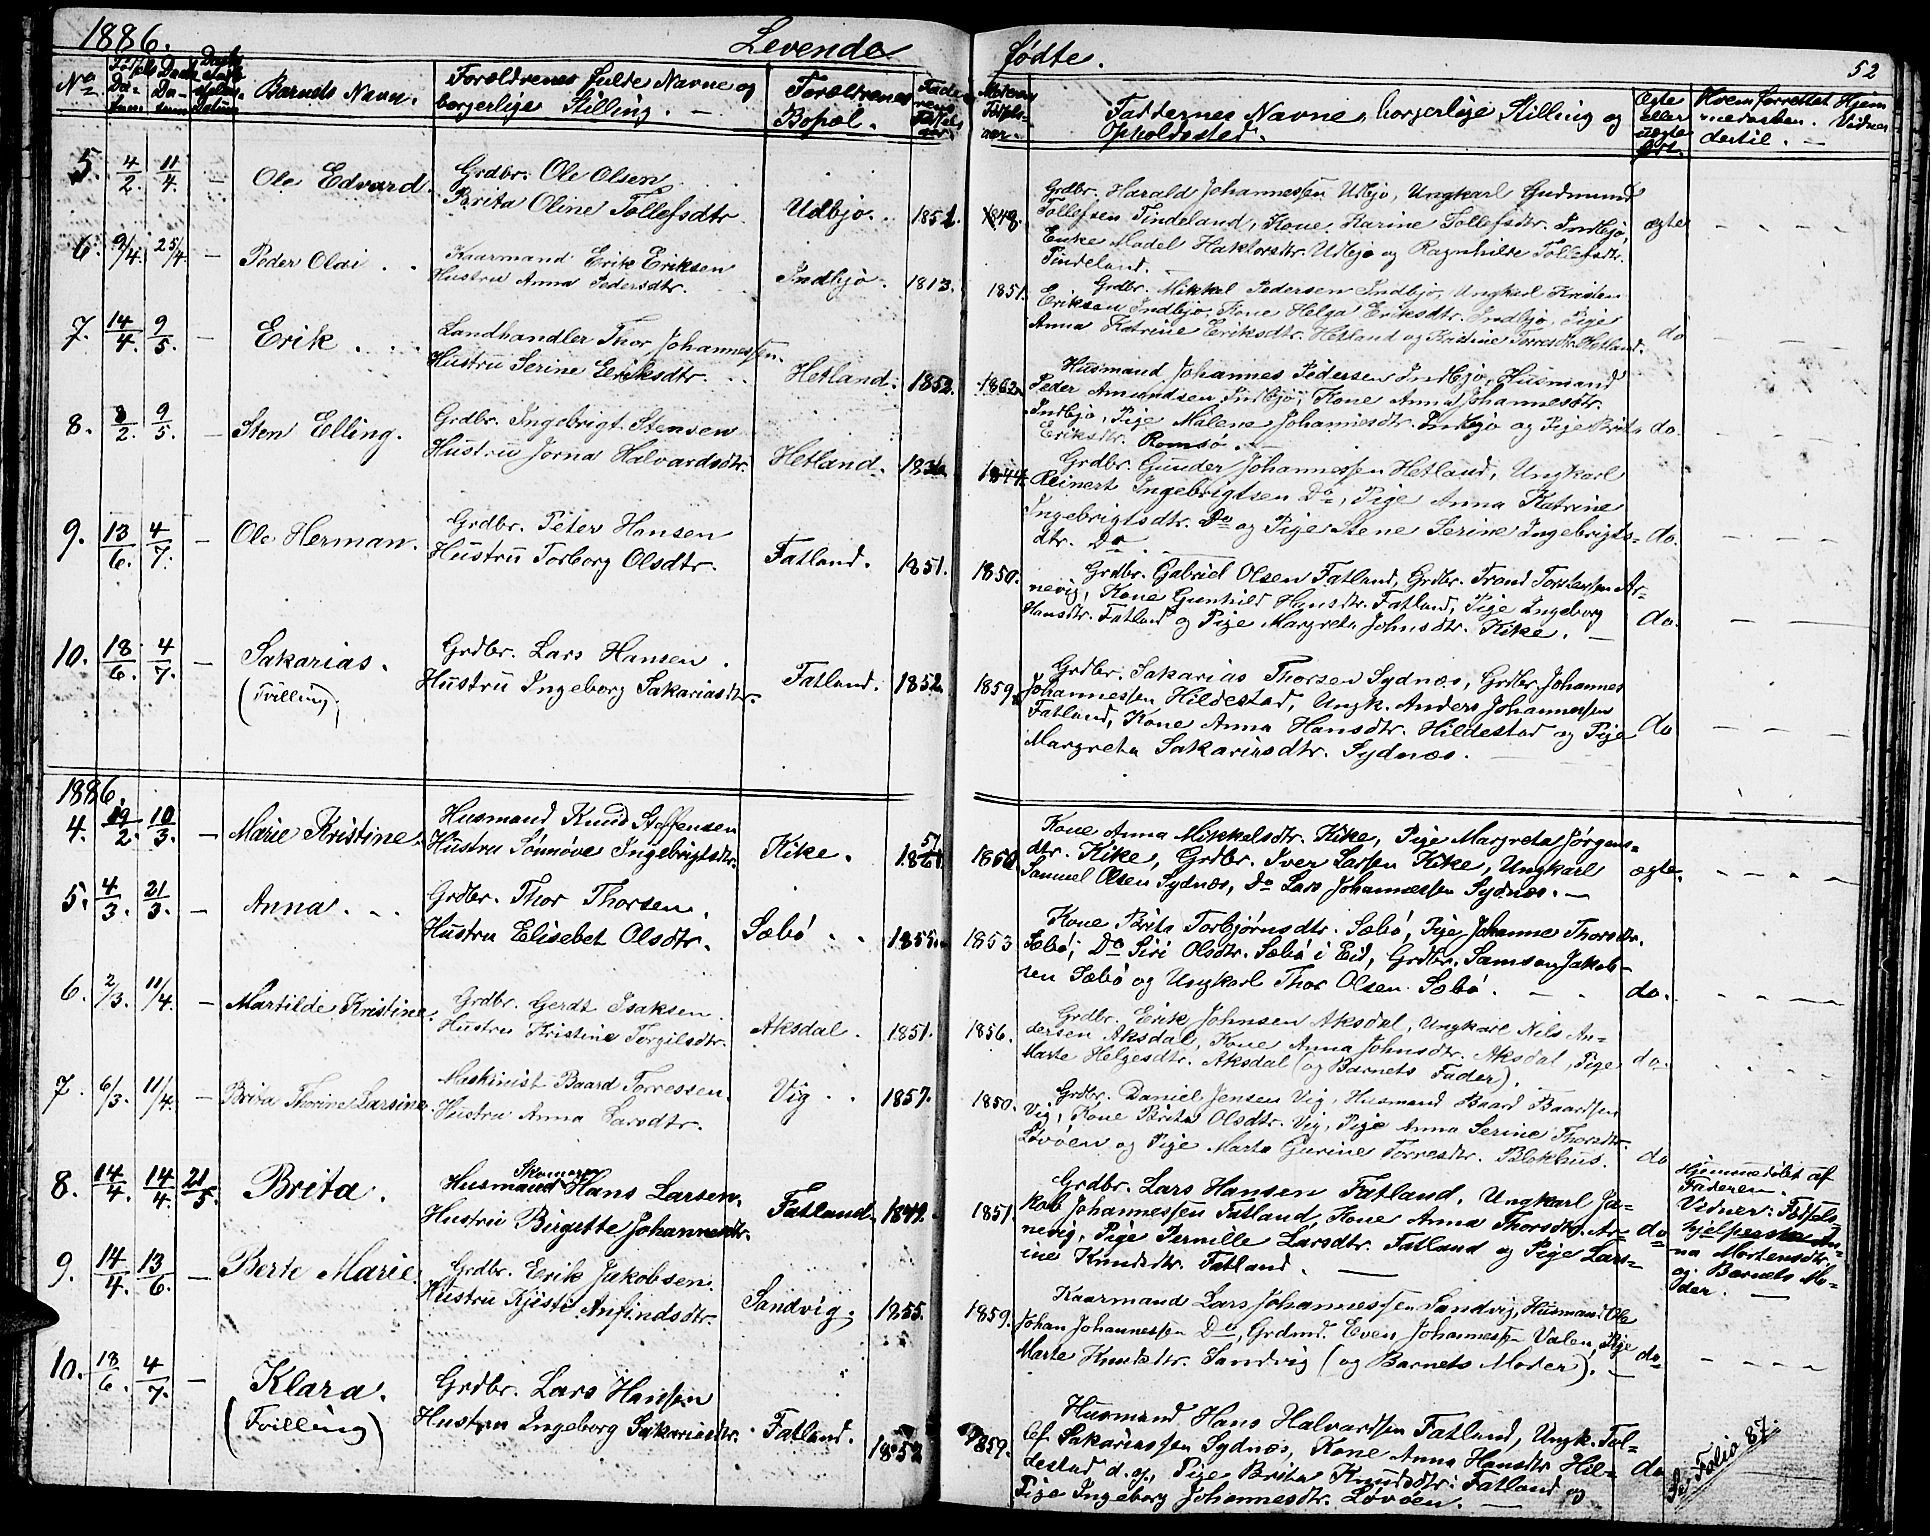 1886. Levende fødte. 52
No Fødsels Datum Daabs Datum Barnets Navn. Forældrenes fulde Navne og borgerlige Stilling. Forældrenes Bopæl. Faderens Fødselsaar Moderens Fødselsaar Faddernes Navne, borgerlige Stilling og Opholdssted. Ægte eller uægte født. Hvem forrettet Hjemmedaaben. Vidner dertil.
5. 4/2. 11/4. — Ole Edvard. Grdbr. Ole Olsen
Brita Oline Tollefsdtr. Udbjo. 1852. 1848.
Grdbr. Harald Johannessen Udbjo, Ungkarl Gudmund
Tollefsen Tindeland, Kone Karine Tollefsdtr. Indbjo, ægte
Enke Madel Haktorsdtr. Udbjo og Ragnhilde Tollefsdtr.
Tindeland.
6. 9/4. 25/4. — Peder Olai Kaarmand Erik Eriksen
Hustru Anna Pedersdtr. Indbjo. 1813. 1851.
Grdbr. Mikkel Pedersen Indbjo, Ungkarl Kristen
Eriksen Indbjo, Kone Helga Eriksdtr. Indbjo, Pige
Anna Katrine Eriksdtr. Hetland og Kristine Torresdtr. Hetland. do
7. 14/4. 9/5. — Erik Landhandler Thor Johannessen.
Hustru Serine Eriksdtr. Hetland. 1852. 1862.
Husmand Johannes Pedersen Indbjo, Husmand
Peder Amundsen Indbjo, Kone Anna Johannesdtr.
Indbjo, Pige Malene Johannesdtr. Indbjo og Pige Brita do.
Eriksdtr. Romsø.
8. 8/2. 9/5. — Sten Elling. Grdbr. Ingebrigt Stensen
Hustru Jorna Halvardsdtr. Hetland. 1836. 1844.
Grdbr. Gunder Johannessen Hetland, Ungkarl
Reinert Ingebrigtsen Do, Pige Anna Katrine
Ingebrigtsdtr. Do og Pige Stene Serine Ingebrigts= do.
dtr. Do
9. 13/6. 4/7. — Ole Herman. Grdbr. Peter Hansen
Hustru Torborg Olsdtr. Fatland. 1851. 1850.
Grdbr. Gabriel Olsen Fatland, Grdbr. Trond Torstensen Ar-
nevig, Kone Gunhild Hansdtr. Fatland, Pige Ingeborg
Hansdtr. Fatland og Pige Margreta Johnsdtr. Kike. — do.
10. 18/6. 4/7. — Sakarias. Grdbr. Lars Hansen.
(Tvilling) Hustru Ingeborg Sakariasdtr. Fatland. 1852. 1859.
Grdbr. Sakarias Thorsen Sydnæs, Grdbr. Johannes
Johannessen Hildestad, Ungk. Anders Johannessen
Fatland, Kone Anna Hansdtr. Hildestad og Pige do
Margreta Sakariasdtr. Sydnæs.
1886
4. 19/2. 10/3. — Marie Kristine. Husmand Knud Steffensen
Hustru Sønnøve Ingebrigtsdtr. Kike. 1851 1850
Kone Anna Mikkelsdtr. Kike, Pige Margreta Jørgens=
dtr. Kike, Grdbr. Iver Larsen Kike, Ungkarl ægte.
Samuel Olsen Sydnæs, Do Lars Johannessen Sydnæs. —
5. 4/3. 21/3. — Anna. Grdbr. Thor Thorsen.
Hustru Elisebet Olsdtr. Sæbø. 1855. 1853
Kone Brita Torbjørnsdtr. Sæbø, Pige Johanne Thorsdtr.
Sæbø, Do Siri Olsdtr. Sæbø i Eid, Grdbr. Samson Jakob-
sen Sæbø og Ungkarl Thor Olsen Sæbø. do.
6. 2/3. 11/4. — Martilde Kristine. Grdbr. Gerdt Isaksen.
Hustru Kristine Torgilsdtr. Aksdal. 1851. 1856.
Grdbr. Erik Johnsen Aksdal, Ungkarl Nils An-
dersen Aksdal, Kone Anna Johnsdtr. Aksdal, Pige
Marte Helgesdtr. Aksdal (og Barnets Fader). do.
7. 6/3. 11/4. — Brita Thorine Larsine. Maskinist Baard Torressen.
Hustru Anna Larsdtr. Vig. 1857. 1850.
Grdbr. Daniel Jensen Vig, Husmand Baard Baardsen
Vig, Kone Brita Olsdtr. Vig, Pige Anna Serine Thorsdtr.
Løvøen og Pige Marta Gurine Torresdtr. Blokhus. do
8. 14/4. 14/4. 21/5. Brita. Skomager
Husmand Hans Larsen.
Hustru Birgitte Johannesdtr. Fatland. 1849. 1851.
Grdbr. Lars Hansen Fatland, Ungkarl Ja-
kob Johannessen Fatland, Kone Anna Thorsdtr. Ar-
nevig, Pige Pernille Larsdtr. Fatland og Pige Lars- do
ine Knudsdtr. Fatland. —
Hjemmedøbt af
Faderen.
Vidner: Fødsels
hjelperske An-
na Mortensdtr.
og Barnets Mo-
der. —
9. 14/4. 13/6. — Berte Marie. Grdbr. Erik Jakobsen.
Hustru Kjisti Anfindsdtr. Sandvig. 1855. 1859.
Kaarmand Lars Johannessen Sandvig, Husmand Ole
Johan Johannessen Do, Grdmd. Even Johannessen Valen, Pige
Marte Knudsdtr. Sandvig (og Barnets Moder). — do.
10. 18/6. 4/7. — Klara. Grdbr. Lars Hansen
(Tvilling) Hustru Ingeborg Sakariasdtr. Fatland. 1852 1859.
Husmand Hans Halvardsen Fatland, Ungk. Tol=
lef Sakariassen Sydnæs, Kone Anna Hansdtr. Hil=
destad d. y., Pige Brita Knudsdtr. Fatland og do
Pige Ingeborg Johannesdtr. Løvøen. —
Se Folio 87.